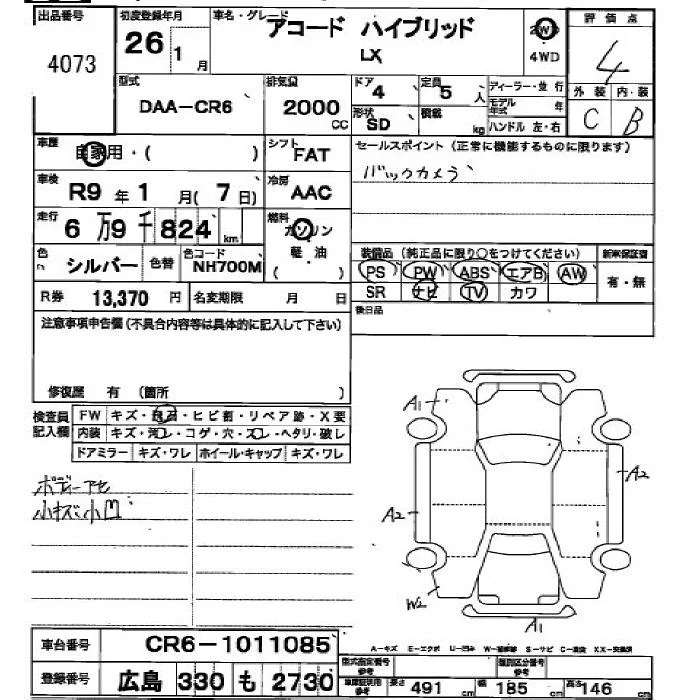 出品番号 4073
初度登録年月 26 1月
車名・グレード アコード ハイブリッド
LX
2WD
4WD
評価点 4
外装 内・装
C B
型式 DAA-CR6
排気量 2000 CC
ドア 4
定員 5 人
形状 SD
積載 kg
ディーラー・並行
モデル年式 年
ハンドル 左・右
車歴 自家用・( )
シフト FAT
セールスポイント (正常に機能するものに限ります)
バックカメラ
車検 R9 年 1 月( 7 日)
冷房 AAC
走行 6 万 9 千 824 km
燃料 ガソリン
軽・油
( )
色 シルバー 色替
色コード NH700M
装備品 (純正品に限り○をつけてください) 新車保証書
PS PW ABS エアB AW 有・無
SR ナビ TV カワ
R券 13,370 円 名変期限 月 日
後日品
注意事項申告欄 (不具合内容等は具体的に記入して下さい)
修復歴 有 (箇所 )
検査員記入欄
FW キズ・飛石・ヒビ割・リペア跡・X要
内装 キズ・汚レ・コゲ・穴・スレ・ヘタリ・破レ
ドアミラー キズ・ワレ ホイール・キャップ キズ・ワレ
ボディーアセ
小キズ小凹
A1
A2
A2
W2
A1
A-キズ E-エクボ U-凹み W-補修跡 S-サビ C-腐食 XX-交換済
車台番号 CR6-1011085
登録番号 広島 330 も 2730
型式指定番号 参考
類別区分番号 参考
車庫証明用 参考 長さ 491 cm 幅 185 cm 高さ 146 cm